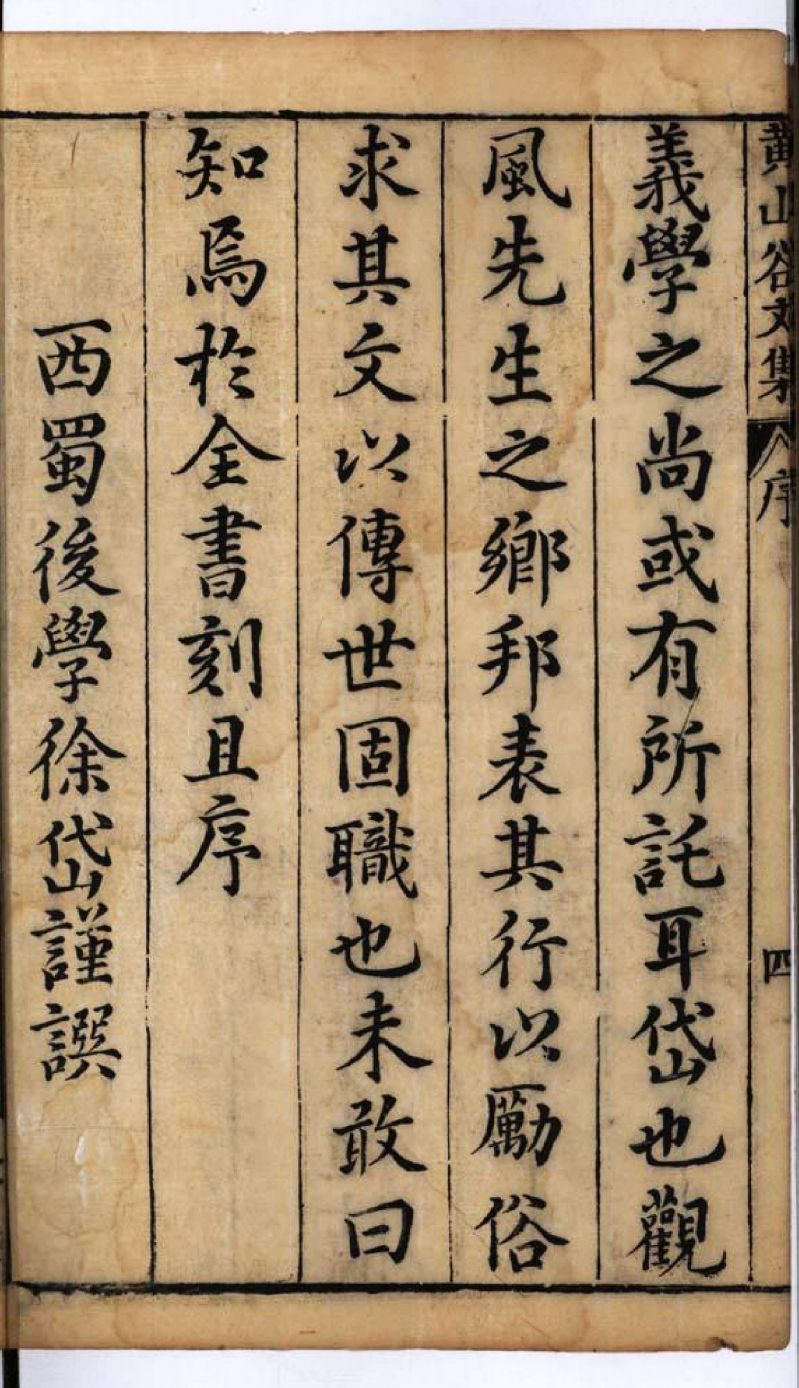 黄山谷文集 序 四
義學之尚或有所託耳岱也觀
風先生之鄉邦表其行以勵俗
求其文以傳世固職也未敢曰
知焉於全書刻且序
西蜀後學徐岱謹譔